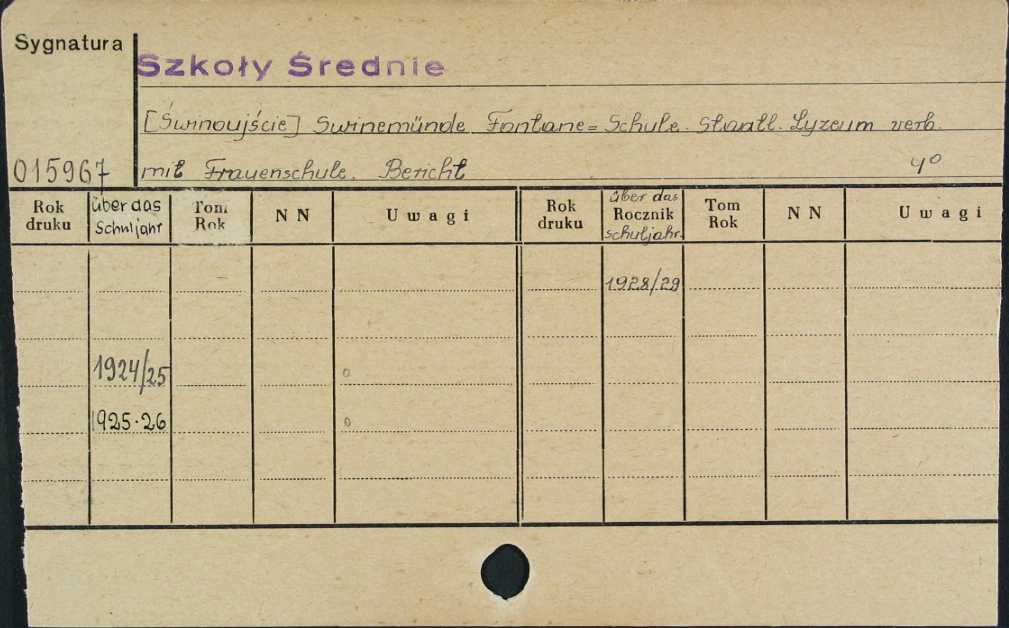 Sygnatura
Szkoły Średnie
[Świnoujście] Swinemünde. Fontane=Schule. Staatl. Lyzeum verb.
015967 mit Frauenschule. Bericht 4°
Rok druku über das Schuljahr Tom Rok NN Uwagi Rok druku über das Rocznik schuljahr. Tom Rok NN Uwagi
1928/29
1924/25 o
1925-26 o